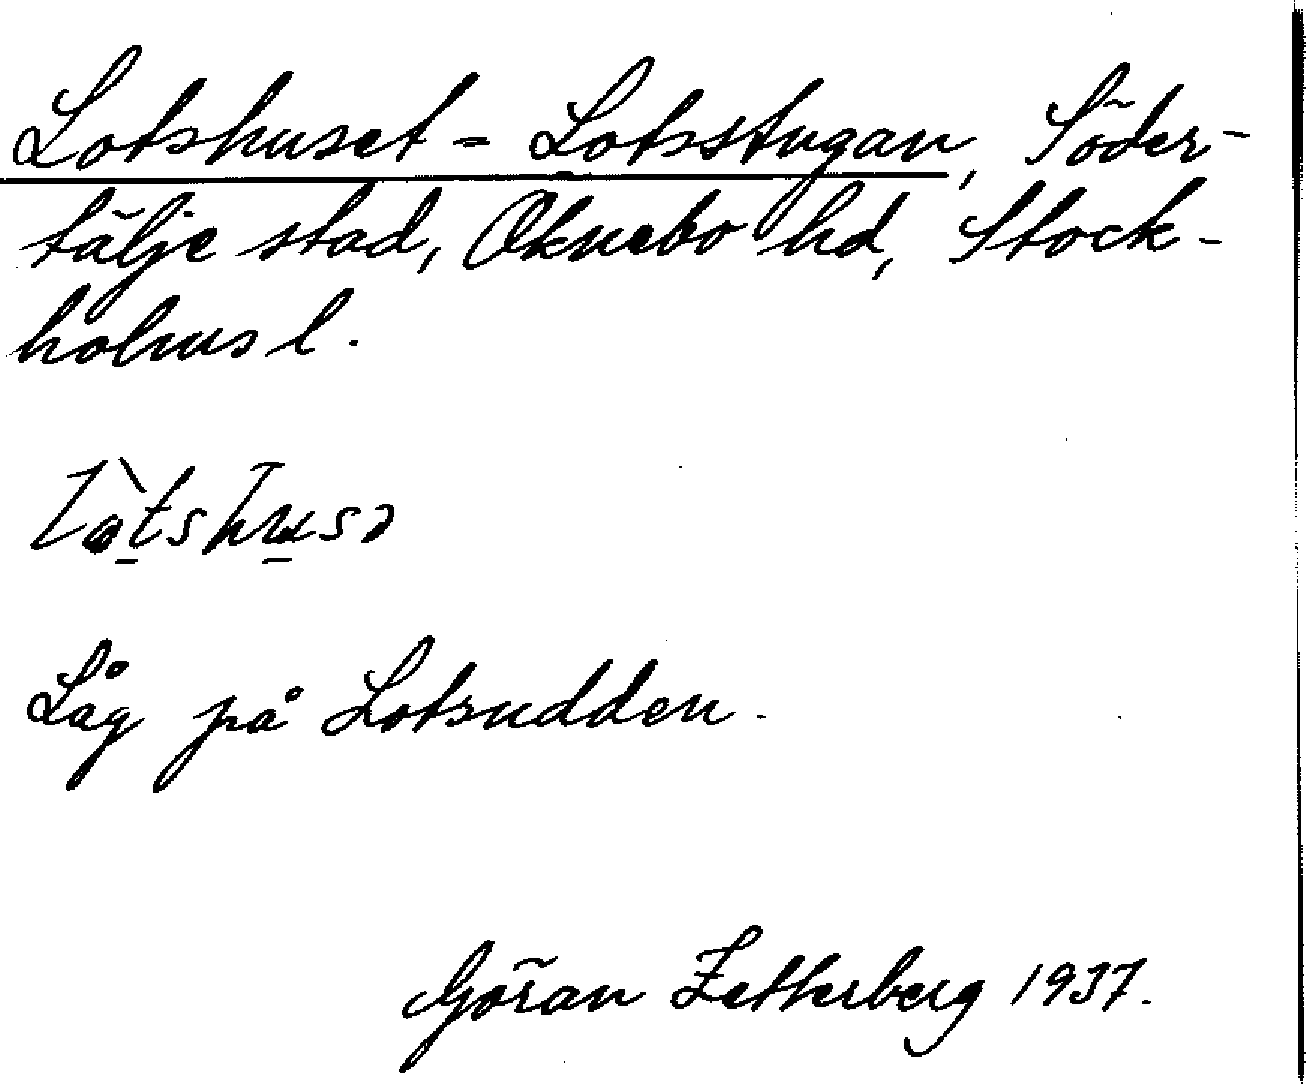 Lotshuset = Lotsstugan, Söder-
tälje stad, Öknebo hd, Stock-
holms l.
Låg på Lotsudden.
Göran Zetterberg 1937.